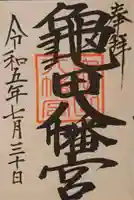 奉拝
龜田八幡宮
令和五年七月三十日